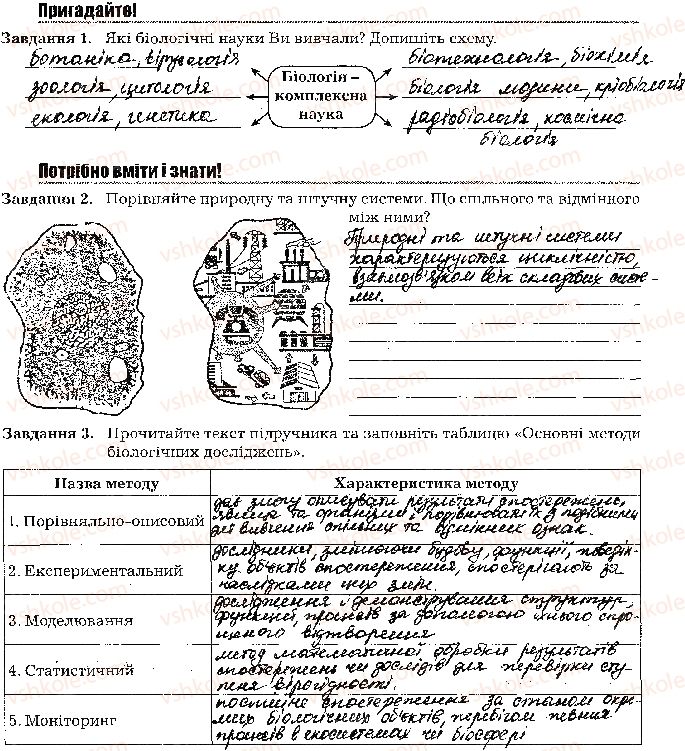 Пригадайте!
Завдання 1. Які біологічні науки Ви вивчали? Допишіть схему.
ботаніка, вірусологія
зоологія, цитологія
екологія, генетика
Біологія –
комплексна
наука
біотехнологія, біохімія
біологія людини, кріобіологія
радіобіологія, космічна
біологія
Потрібно вміти і знати!
Завдання 2. Порівняйте природну та штучну системи. Що спільного та відмінного
між ними?
Природні та штучні системи
характеризуються циклічністю,
взаємозв'язком всіх складових систе-
ми.
Завдання 3. Прочитайте текст підручника та заповніть таблицю «Основні методи
біологічних досліджень».
Назва методу
Характеристика методу
1. Порівняльно-описовий
дає змогу описувати результати спостережень,
явища та організми, порівнювати їх з подібними
для вивчення спільних та відмінних ознак.
2. Експериментальний
дослідники, змінюючи будову, функції, поведін-
ку об'єктів спостереження, спостерігають за
наслідками цих змін.
3. Моделювання
дослідження і демонстрування структур,
функцій, процесів за допомогою їхнього спро-
щеного відтворення
4. Статистичний
метод математичної обробки результатів
спостережень чи дослідів для перевірки сту-
пеня вірогідності.
5. Моніторинг
постійне спостереження за станом окре-
мих біологічних об'єктів, перебігом певних
процесів в екосистемах чи біосфері
vshkole.com